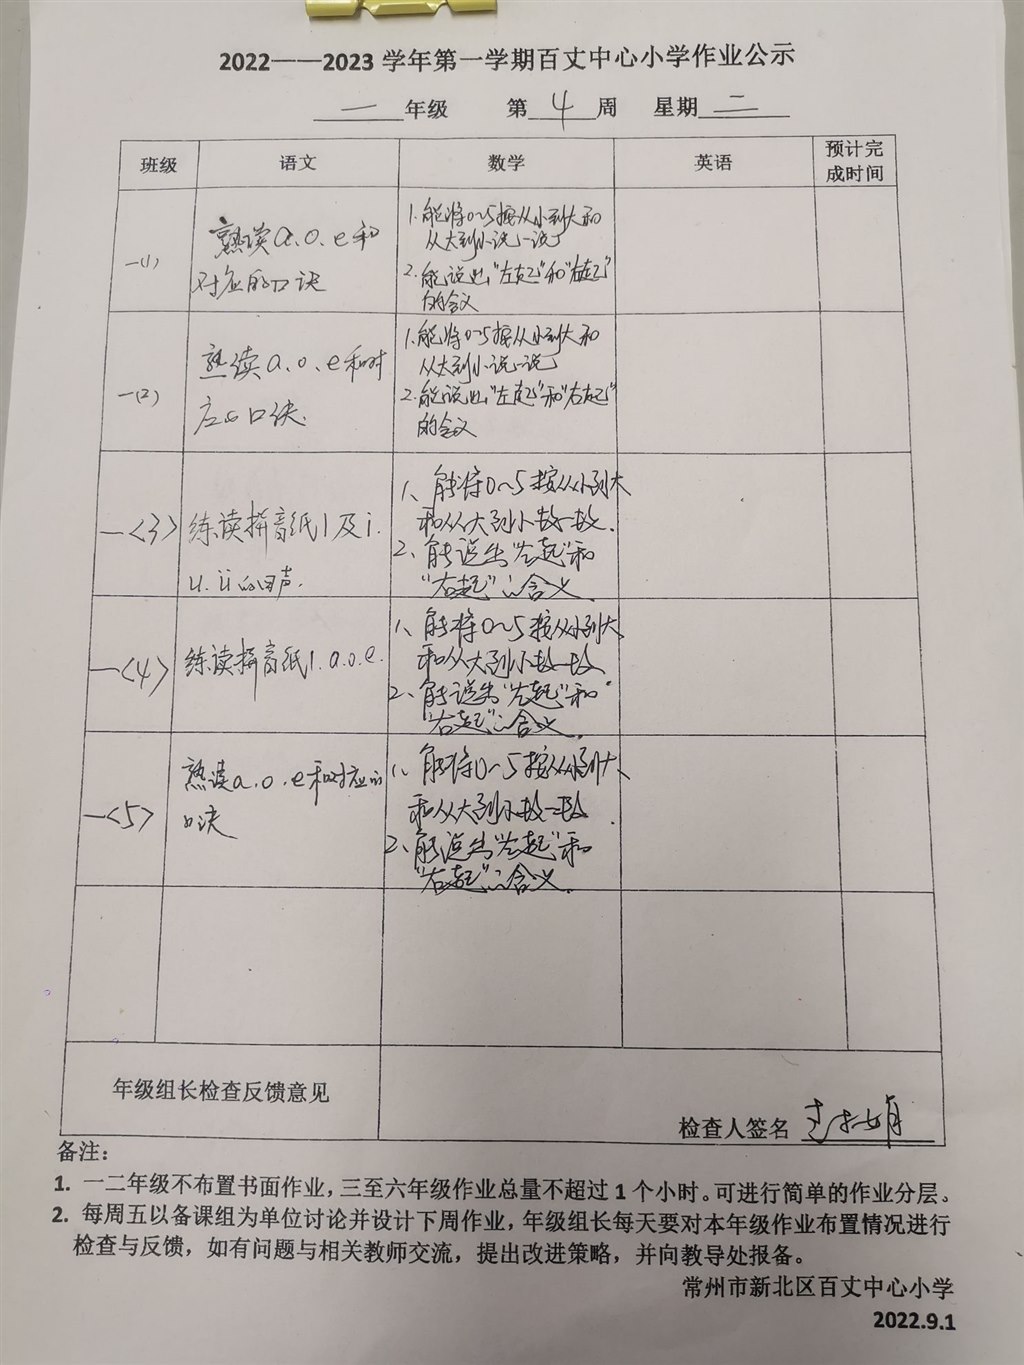 2022——2023 学年第一学期百丈中心小学作业公示
一 年级 第 4 周 星期 二
班级 语文 数学 英语 预计完成时间
一(1)
熟读a.o.e和
对应的口诀
1.能将0~5按从小到大和
从大到小说一说
2.能说出“左起”和“右起”
的含义
一(2)
熟读a.o.e和对
应的口诀.
1.能将0~5按从小到大和
从大到小说一说
2.能说出“左起”和“右起”
的含义
一<3>
练读拼音纸1及i.
u.ü的四声.
1、能将0~5按从小到大
和从大到小数一数.
2、能说出“左起”和
“右起”的含义.
一<4>
练读拼音纸1.a.o.e.
1、能将0~5按从小到大
和从大到小数一数
2、能说出“左起”和
“右起”的含义.
一<5>
熟读a.o.e和对应的
口诀
1、能将0~5按从小到大
和从大到小数一数.
2、能说出“左起”和
“右起”的含义.
年级组长检查反馈意见
检查人签名
备注：
1. 一二年级不布置书面作业，三至六年级作业总量不超过 1 个小时。可进行简单的作业分层。
2. 每周五以备课组为单位讨论并设计下周作业，年级组长每天要对本年级作业布置情况进行
检查与反馈，如有问题与相关教师交流，提出改进策略，并向教导处报备。
常州市新北区百丈中心小学
2022.9.1